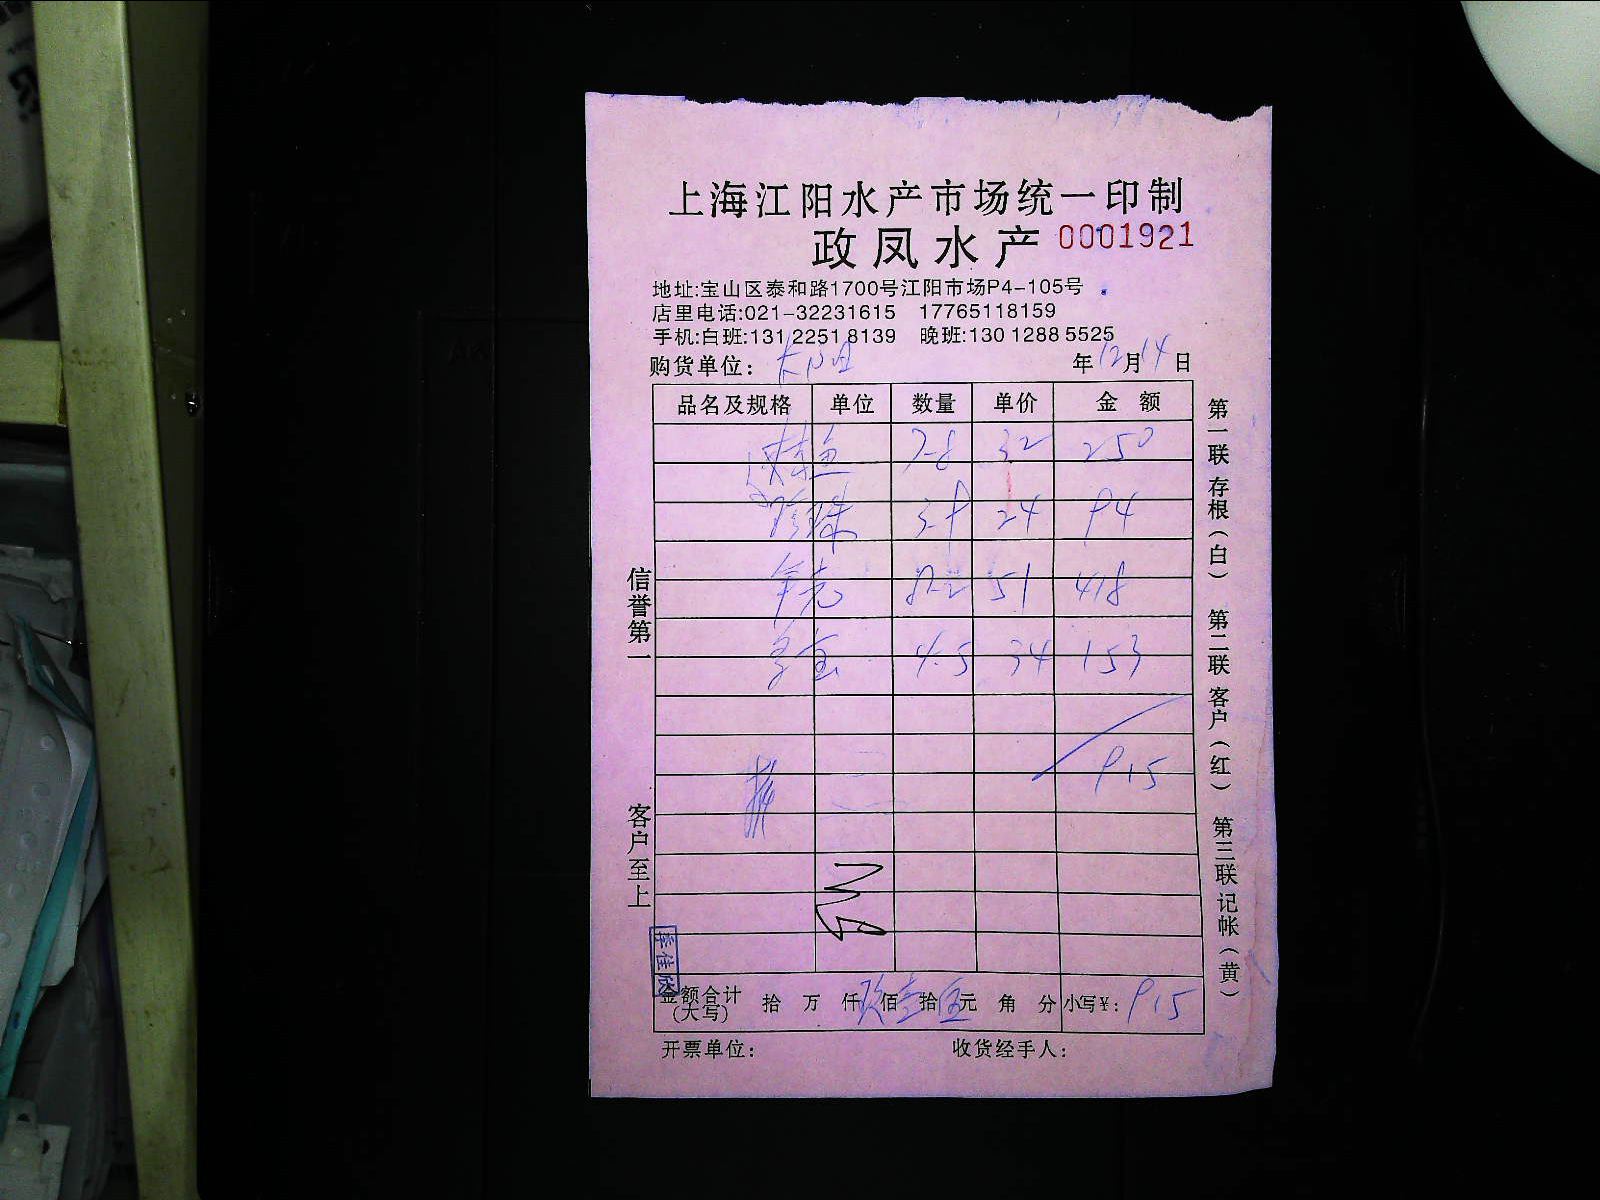 上海江阳水产市场统一印制
政凤水产 0001921
地址:宝山区泰和路1700号江阳市场P4-105号
店里电话:021-32231615 17765118159
手机:白班:131 2251 8139 晚班:130 1288 5525
购货单位: 年12月14日
品名及规格 单位 数量 单价 金额
鱼 7-8 32 250
珍珠 3.9 24 94
8.2 51 418
多宝 4.5 34 153
915
金额合计(大写) 拾 万 仟玖佰壹拾伍元 角 分 小写¥: 915
开票单位: 收货经手人:
信誉第一 客户至上
季佳欣
第一联 存根(白) 第二联 客户(红) 第三联 记帐(黄)